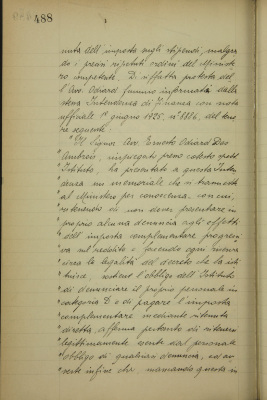 488
nuta dell'imposta sugli stipendi, malgra-
do i precisi ripetuti ordini del Ministe-
ro competente. Di siffatta protesta del
l'Avv. Odiard fummo informati dalla
stessa Intendenza di Finanza con nota
ufficiale 1° giugno 1925, n° 1886, del teno-
re seguente:
"Il Signor Avv. Ernesto Odiard Des
Ambrois, impiegato presso codesto
" Istituto, ha presentato a questa Inten-
" denza un memoriale che si trasmette
" al Ministero per conoscenza, con cui,
" ritenendo di non dover presentare in
" proprio alcuna denuncia agli effetti
" dell'imposta complementare progressi-
" va sul reddito e facendo ogni riserva
" circa la legalità del decreto che la isti
" tuisce, sostiene l'obbligo dell'Istituto
" di denunciare il proprio personale in
" categoria D e di pagare l'imposta
" complementare mediante ritenuta
" diretta, afferma pertanto di ritenersi
" legittimamente esente dal personale
" obbligo di qualsiasi denuncia, ed av-
" verte infine che, mancando questa in